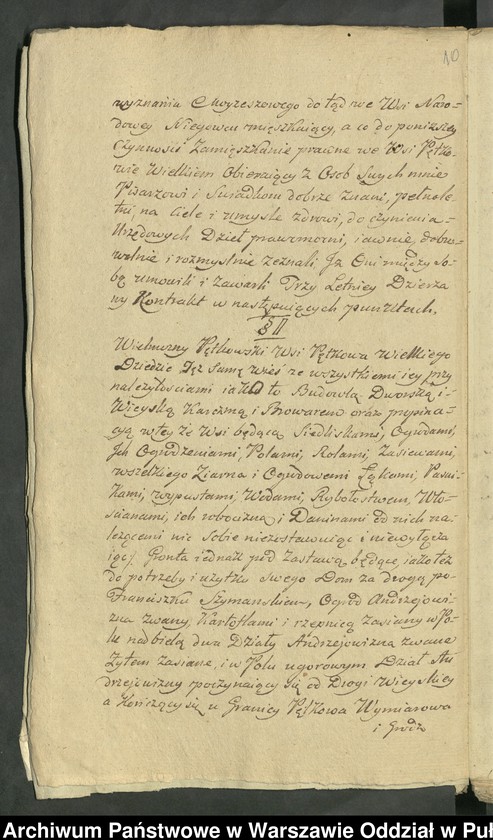 10
wyznania Moyżeszowego dotąd we Wsi Naro-
dowey Niegowcu mięszkaiący, a co do poniższey
Czynności Zamięszkanie prawne we Wsi Pętko-
wie Wielkiem Obieraiący z Osob Swych mnie
Pisarzowi i Swiadkom dobrze znani, pełnole-
tni, na Ciele i umyśle zdrowi, do czynienia
Urzędowych Dzieł prawomocni, iawnie, dobro-
wolnie i rozmyślnie zeznali Jż Oni między So-
bą umowili i Zawarli Trzy Letniey Dzierża
wy Kontrakt w następuiących punktach.
§ II
Wielmożny Pętkowski Wsi Pętkowa Wielkiego
Dziedzic Tęż Samę Wieś ze wszystkiemi iey przy
należytościami iako to Budowlą Dworską i
Wieyską Karczmą i Browarem oraz propina-
cyą w tey że Wsi będącą Siedliskami, Ogrodami,
Jch Ogrodzeniami, Polami, Rolami, Zasiewami,
wszelkiego Ziarna i Ogrodowemi Łąkami, Pastwi-
Kami, wypustami, Wodami, Rybołostwem, Wło-
ścianami, ich robocizną i Daninami od nich na-
leżącemi nic Sobie niezostawuiąc i niewyłącza
iąc/. Gronta iednak pod Zastawą będące, iako też
do potrzeby i użytku Swego Dom za drogą po
Franciszku Szymanskiem, Ogrod Andrzejowi-
zna zwany Kartoflami i rzepnicą Zasiany w Po-
lu nad bielą dwa Działy Andrzejowizna zwane
Żytem Zasiane, i w Polu ugorowym Dział An
drzejowizny poczynaiący się od Drogi Wieyskiey
a Kończący się u Granicy Pętkowa Wymiarowa
i Grodz
Archiwum Państwowe w Warszawie Oddział w Puł